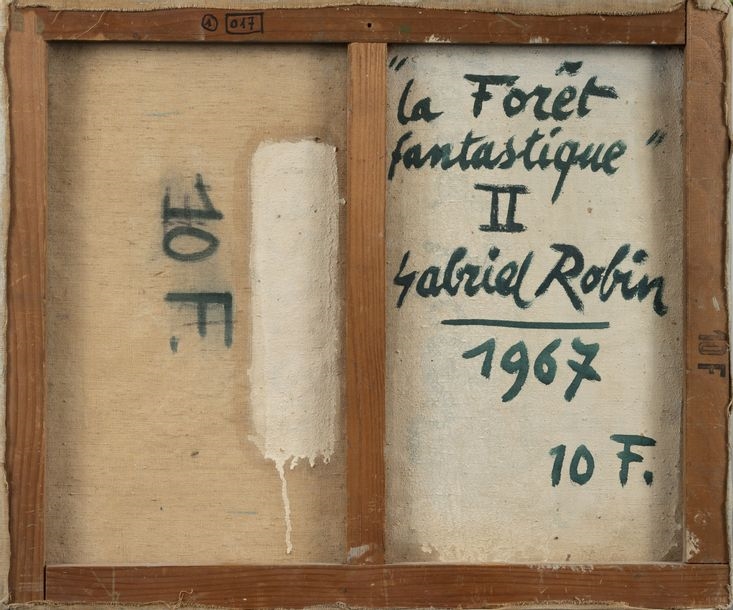 1 017
"la Forêt
fantastique"
II
Gabriel Robin
1967
10 F.
10 F.
10 F